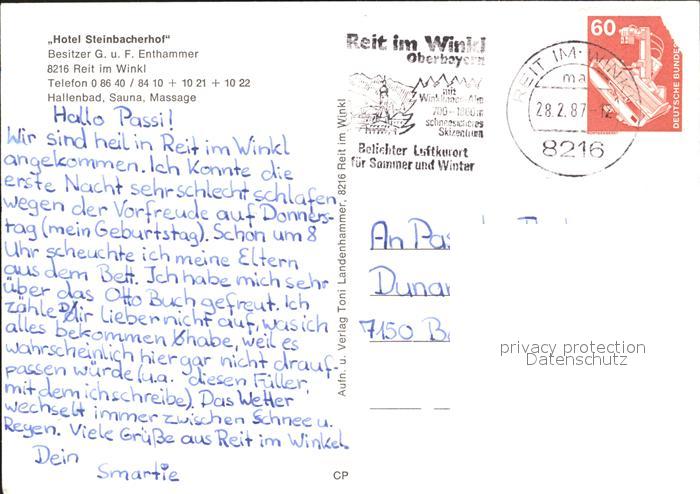 „Hotel Steinbacherhof"
Besitzer G. u. F. Enthammer
8216 Reit im Winkl
Telefon 0 86 40 / 84 10 + 10 21 + 10 22
Hallenbad, Sauna, Massage
Hallo Passi!
Wir sind heil in Reit im Winkl
angekommen. Ich konnte die
erste Nacht sehr schlecht schlafen
wegen der Vorfreude auf Donners-
tag (mein Geburtstag). Schon um 8
Uhr scheuchte ich meine Eltern
aus dem Bett. Ich habe mich sehr
über das Otto Buch gefreut. Ich
zähle Dir lieber nicht auf, was ich
alles bekommen habe, weil es
wahrscheinlich hier gar nicht drauf-
passen würde (u.a. diesen Füller,
mit dem ich schreibe). Das Wetter
wechselt immer zwischen Schnee u.
Regen. Viele Grüße aus Reit im Winkel
Dein
Smartie
Aufn. u. Verlag Toni Landenhammer, 8216 Reit im Winkl
CP
Reit im Winkl
Oberbayern
mit
Winklmoos-Alm
700 - 1800 m
schneesicheres
Skizentrum
Beliebter Luftkurort
für Sommer und Winter
REIT IM WINKL
ma
28.2.87-12
8216
60
DEUTSCHE BUNDES
An Pas
Dunan
7150 Ba
privacy protection
Datenschutz